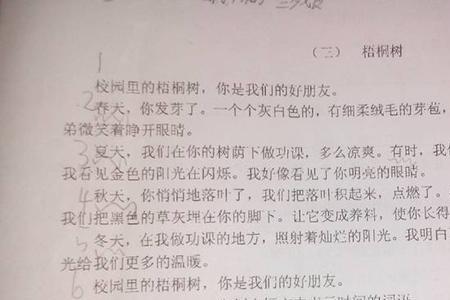 (三) 梧桐树
1
校园里的梧桐树，你是我们的好朋友。
2 春天，你发芽了。一个个灰白色的，有细柔绒毛的芽苞，
弟微笑着睁开眼睛。
3 夏天，我们在你的树荫下做功课，多么凉爽。有时，我
我看见金色的阳光在闪烁。我好像看见了你明亮的眼睛。
4 秋天，你悄悄地落叶了，我们把落叶积起来，点燃了。
我们把黑色的草灰埋在你的脚下。让它变成养料，使你长得
5 冬天，在我做功课的地方，照射着灿烂的阳光。我明白
光给我们更多的温暖。
6 校园里的梧桐树，你是我们的好朋友。